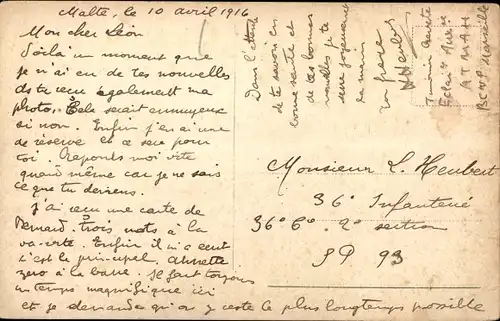 Malte, le 10 avril 1916
Mon cher Léon
Voilà un moment que
je n'ai eu de tes nouvelles
as tu reçu également ma
photo. Cela serait ennuyeux
si non. Enfin j'en ai une
de réserve et ce sera pour
toi. Reponds moi vite
quand même car je ne sais
ce que tu deviens.
J'ai reçu une carte de
Bernard. Trois mots à la
va-vite. Enfin il m'a écrit
c'est le principal.
zéro à la barre. Il fait toujours
un temps magnifique ici
et je demande qu'on y reste le plus longtemps possible
Dans l'attente
de te savoir en
bonne santé et
de tes bonnes
nouvelles je te
serre
la main
ton frère
ATMAH
Marseille
Monsieur L. Heubert
36e Infanterie
36e Cie. 2e section
SP 93